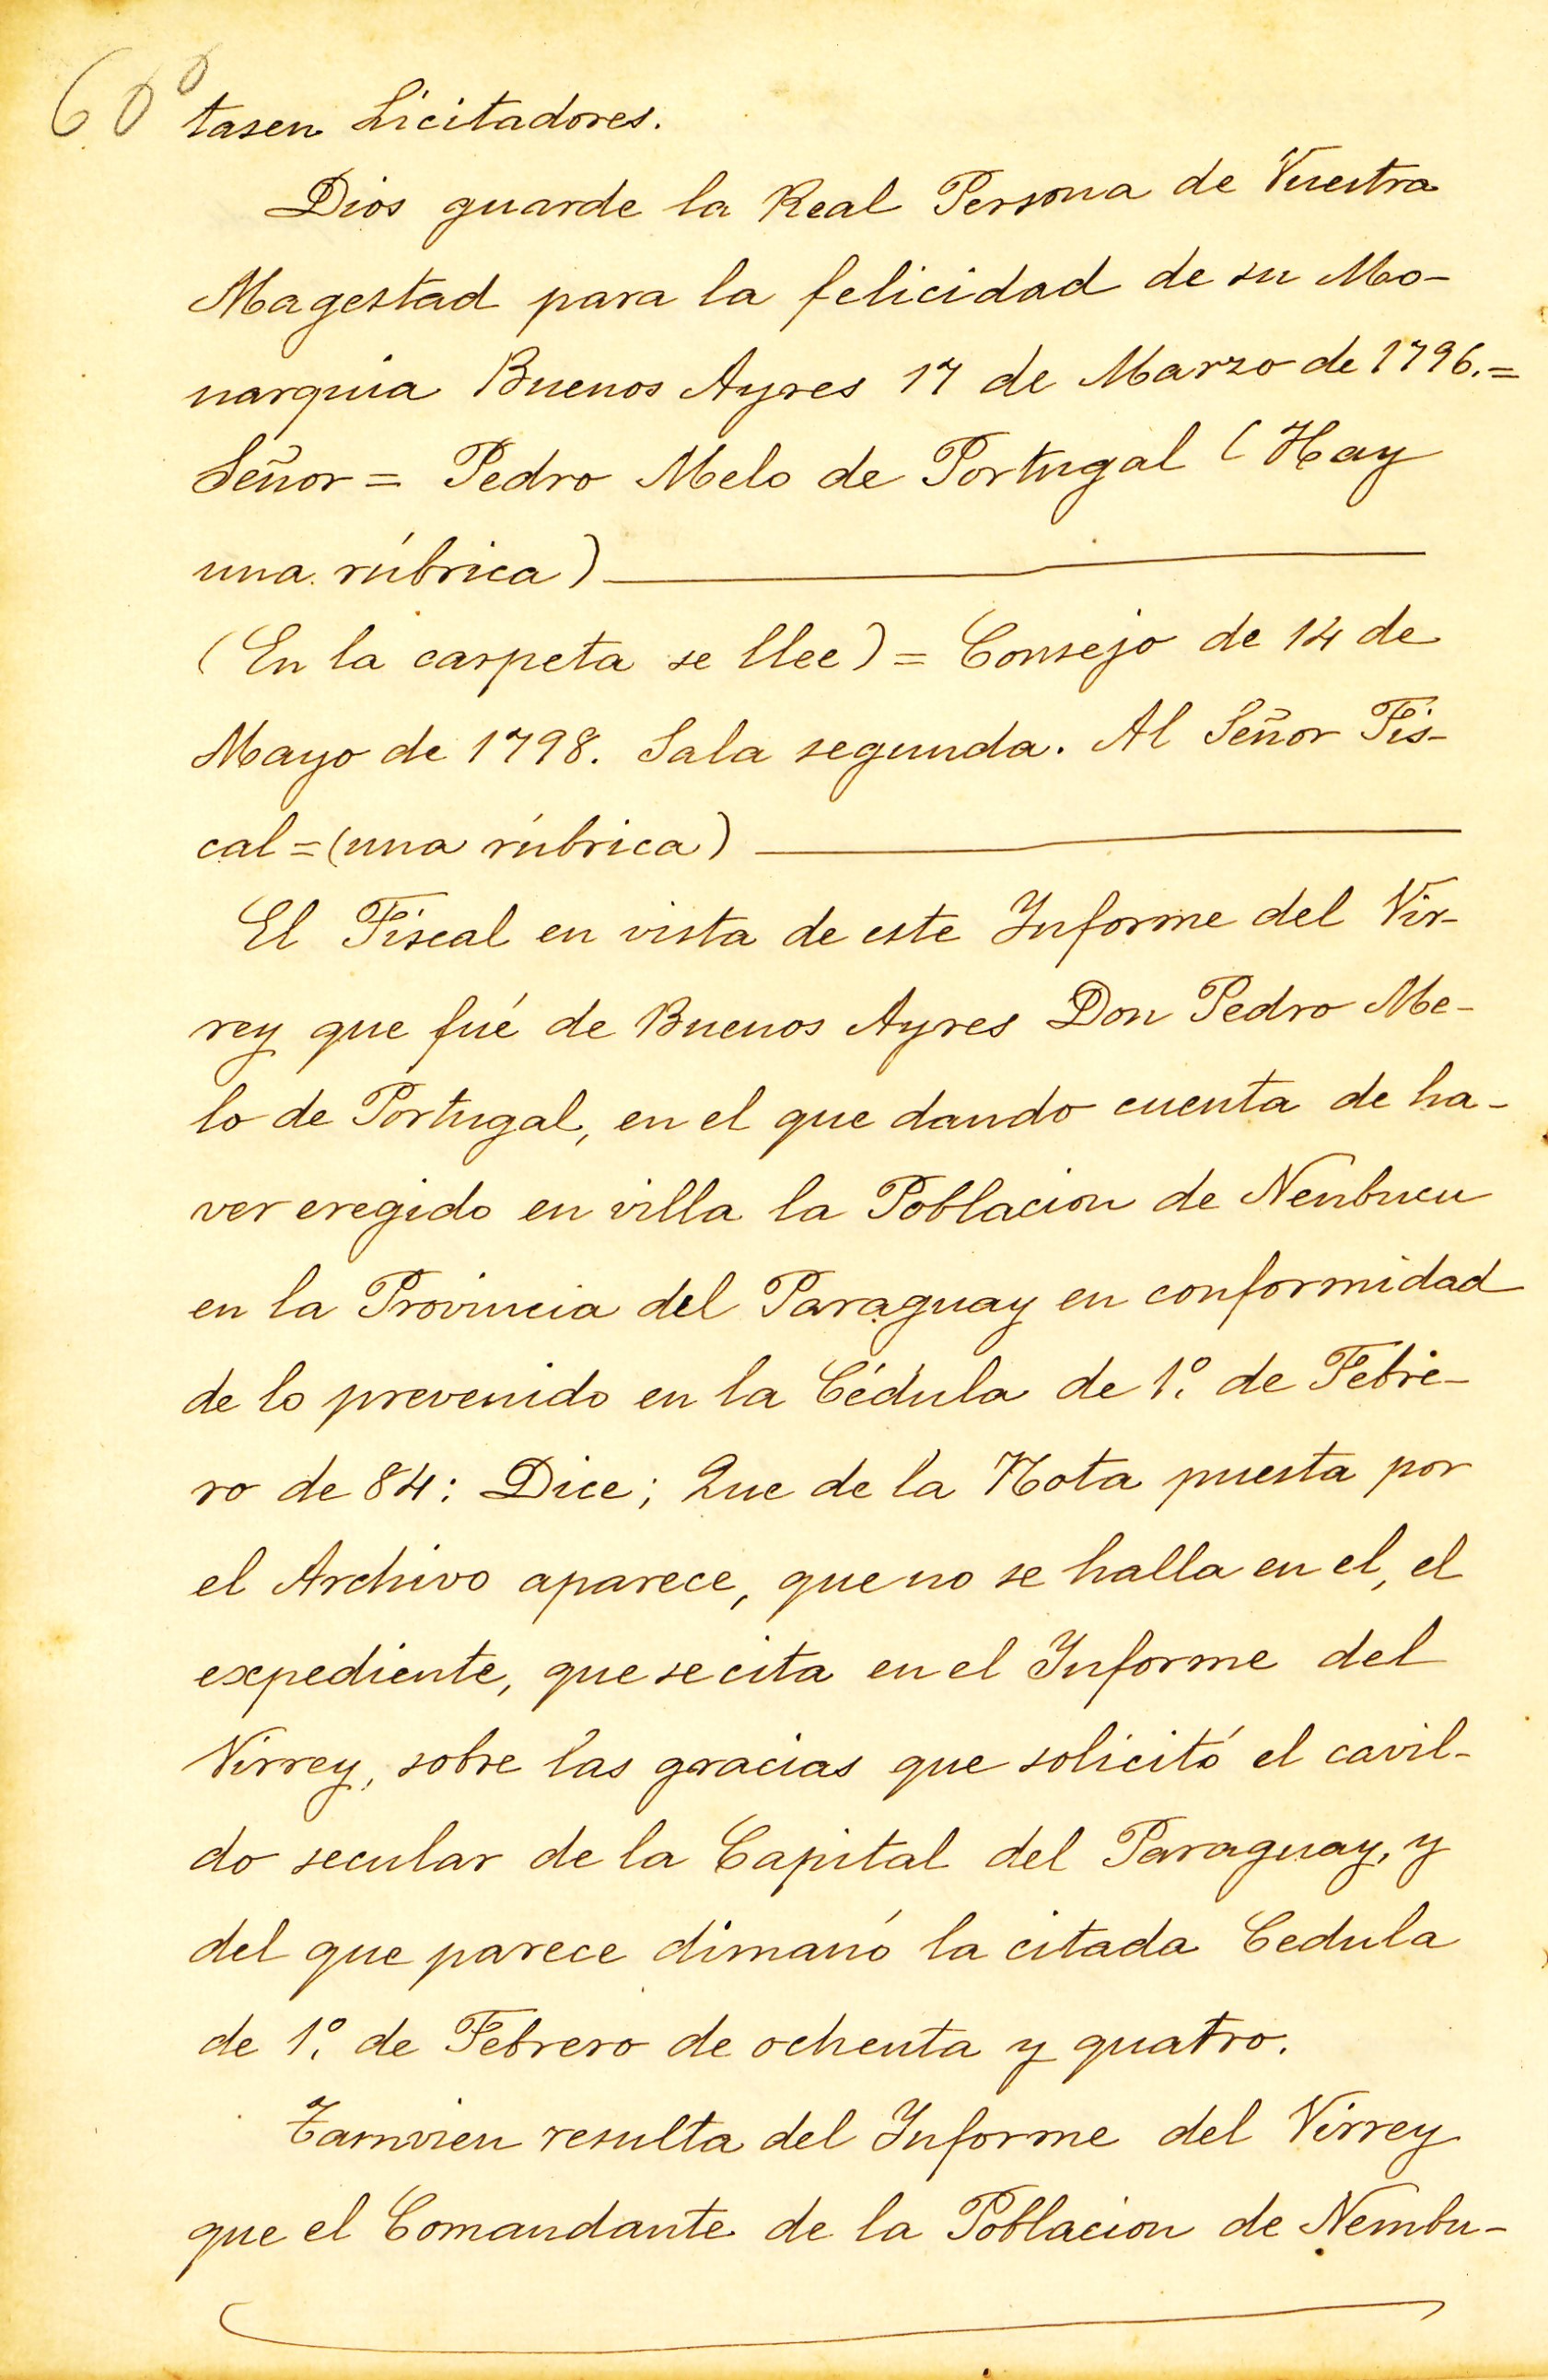 60
tasen Licitadores.
Dios guarde la Real Persona de Vuestra
Magestad para la felicidad de su Mo-
narquia Buenos Ayres 17 de Marzo de 1796.=
Señor = Pedro Melo de Portugal (Hay
una rúbrica)
(En la carpeta se llee) = Consejo de 14 de
Mayo de 1798. Sala segunda. Al Señor Fis-
cal = (una rúbrica)
El Fiscal en vista de este Informe del Vir-
rey que fué de Buenos Ayres Don Pedro Me-
lo de Portugal, en el que dando cuenta de ha-
ver eregido en villa la Poblacion de Nenbucu
en la Provincia del Paraguay en conformidad
de lo prevenido en la Cédula de 1º. de Febre-
ro de 84: Dice; Que de la Nota puesta por
el Archivo aparece, que no se halla en el, el
expediente, que se cita en el Informe del
Virrey, sobre las gracias que solicitó el cavil-
do secular de la Capital del Paraguay, y
del que parece dimanó la citada Cedula
de 1º. de Febrero de ochenta y quatro.
Tamvien resulta del Informe del Virrey
que el Comandante de la Poblacion de Nembu-